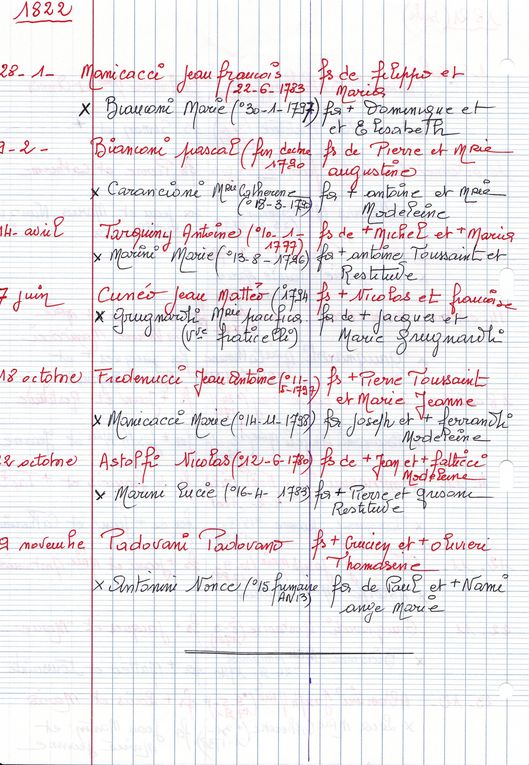 1822
28-1- Manicacci Jean francois fs de filippo et
(°22-6-1783 Maria
x Bianconi Marie (°30-1-1797) fa + Dominique et
et Elisabeth
9-2- Bianconi pascal (fin decbre fs de Pierre et Mrie
1780 augustine
x Carancioni Mrie Catherine fa + antoine et Mrie
Modeleine
14- avril Tarquiny Antoine (°10-1- fs de + Michel et + Maria
1777)
x Marini Marie (°13-8-1786) fa + antoine Toussaint et
Restitude
7 juin Cunéo Jean Mattéo (°1794 fs + Nicolas et francoise
x Grugnardli Mrie pacifica fa de + Jacques et
(vve fraticelli) Marie Grugnardli
18 octobre Fredenucci Jean Antoine (°11- fs + Pierre Toussaint
5-1797) et Marie Jeanne
x Manicacci Marie (°14-11-1798) fa Joseph et + ferrandi
Modeleine
2 octobre Astolfi Nicolas (°12-6-1780) fs de + Jean et + faltieci
Modeleine
x Marini Lucie (°16-4-1783) fa + Pierre et
Restitude
9 novembe Padovani Padovano fs + Crucien et + olivieri
Thomasine
x Antonini Nonce (°15 frimaire fa de Paul et + Nami
AN 13) ange Marie